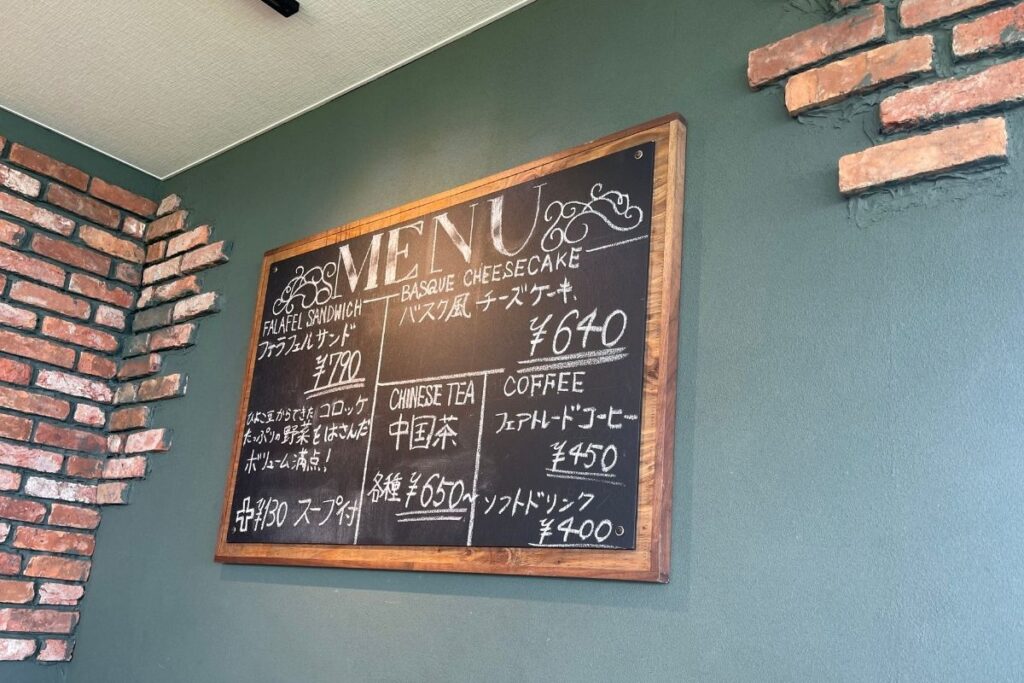 MENU
FALAFEL SANDWICH
ファラフェルサンド
¥790
ひよこ豆からできたコロッケ
たっぷりの野菜をはさんだ
ボリューム満点！
+¥130 スープ付
BASQUE CHEESECAKE
バスク風チーズケーキ
¥640
CHINESE TEA
中国茶
各種¥650~
COFFEE
フェアトレードコーヒー
¥450
ソフトドリンク
¥400